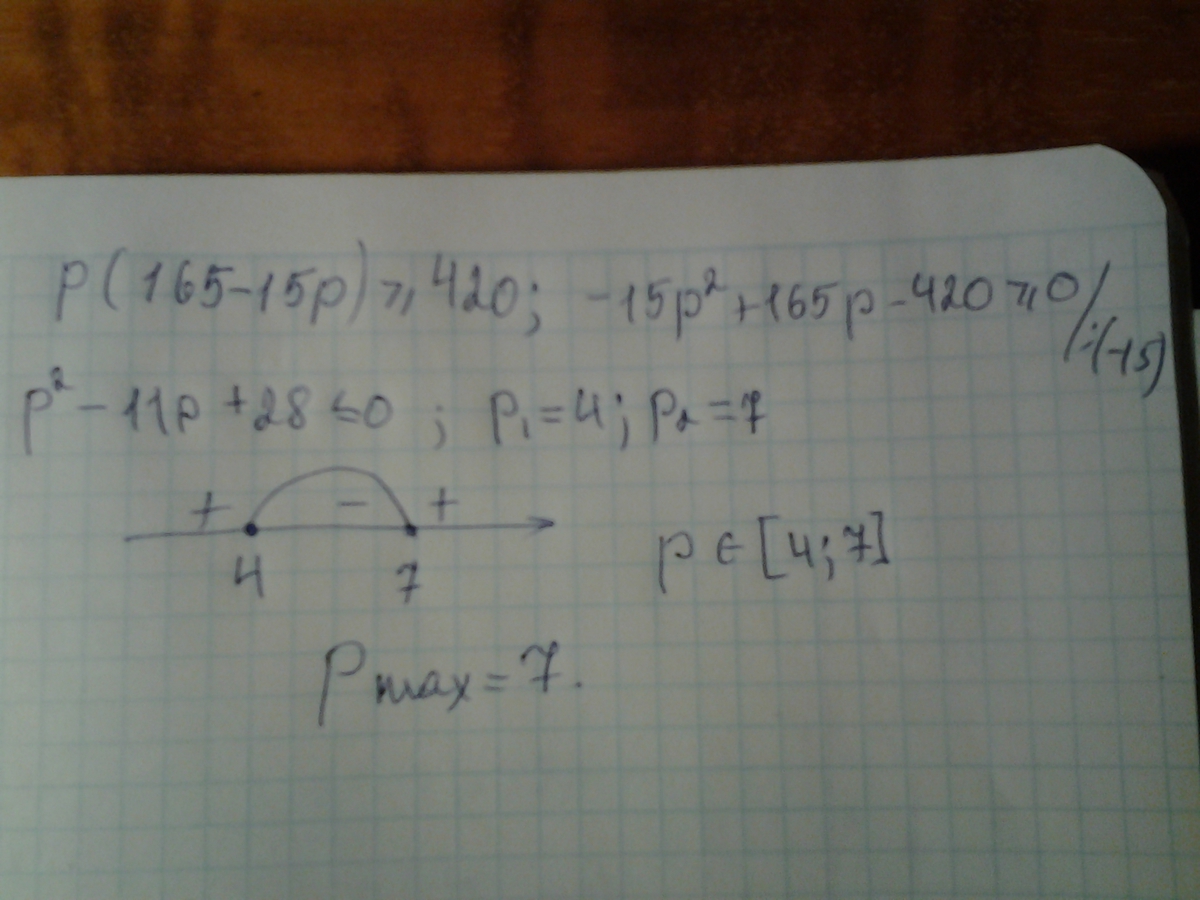 p(165-15p)⩾420; -15p²+165p-420⩾0/:(-15)
p²-11p+28≤0; p₁=4; p₂=7
+ - +
4 7 p∈[4;7]
Pmax=7.